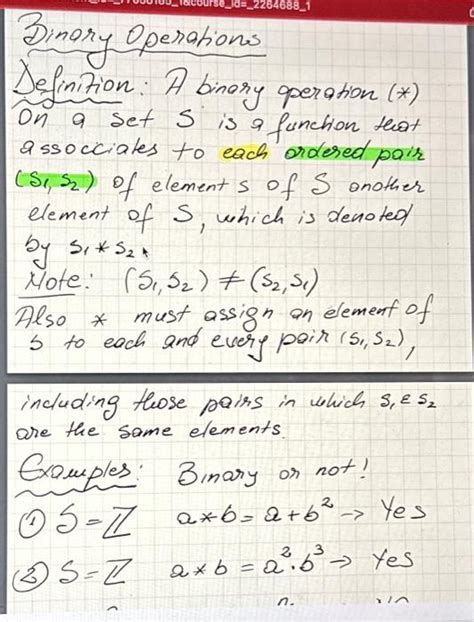 1&course_id=_2264688_1
Binary Operations
Definition: A binary operation (*)
on a set S is a function that
associates to each ordered pair
(s₁, s₂) of elements of S another
element of S, which is denoted
by s₁ * s₂
Note: (s₁, s₂) ≠ (s₂, s₁)
Also * must assign an element of
s to each and every pair (s₁, s₂),
including those pairs in which s₁ & s₂
are the same elements.
Examples: Binary or not!
① S = ℤ a * b = a + b² → Yes
② S = ℤ a * b = a²·b³ → Yes